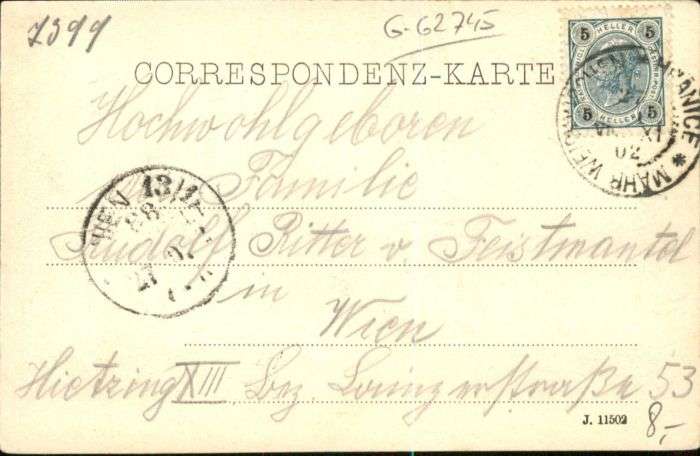 7399
G-62745
5 HELLER 5
5 HELLER 5
CORRESPONDENZ-KARTE
MÄHR. WEISSKIRCHEN * HRANICE
XI
02
Hochwohlgeboren
Familie
WIEN 13/1
88
27
Rudolf Ritter v. Feistmantel
in
Wien
Hietzing XIII Bez. Lainzerstraße 53
J. 11502
8,-